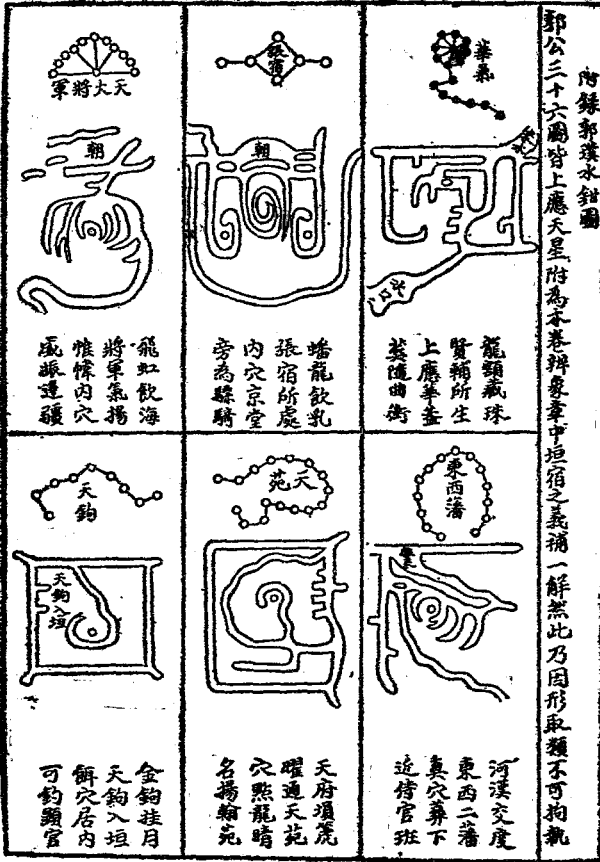 附錄郭璞水鉗圖
郭公三十六圖皆上應天星附為本卷辨象章中垣宿之義補一解然此乃因形取類不可拘執
水口
龍頸藏珠
賢輔所生
上應華蓋
隨曲衛
張宿
朝
蟠龍飲乳
張宿所處
內穴京堂
旁為驃騎
天大將軍
朝
飛虹飲海
將軍氣揚
帷幛內穴
威振邊疆
東西藩
河漢交度
東西二藩
真穴葬下
近侍官班
天苑
天府塤箎
曜通天苑
穴點龍睛
名揚翰苑
天鉤
天鉤入垣
金鉤挂月
天鉤入垣
餌穴居內
可釣顯官